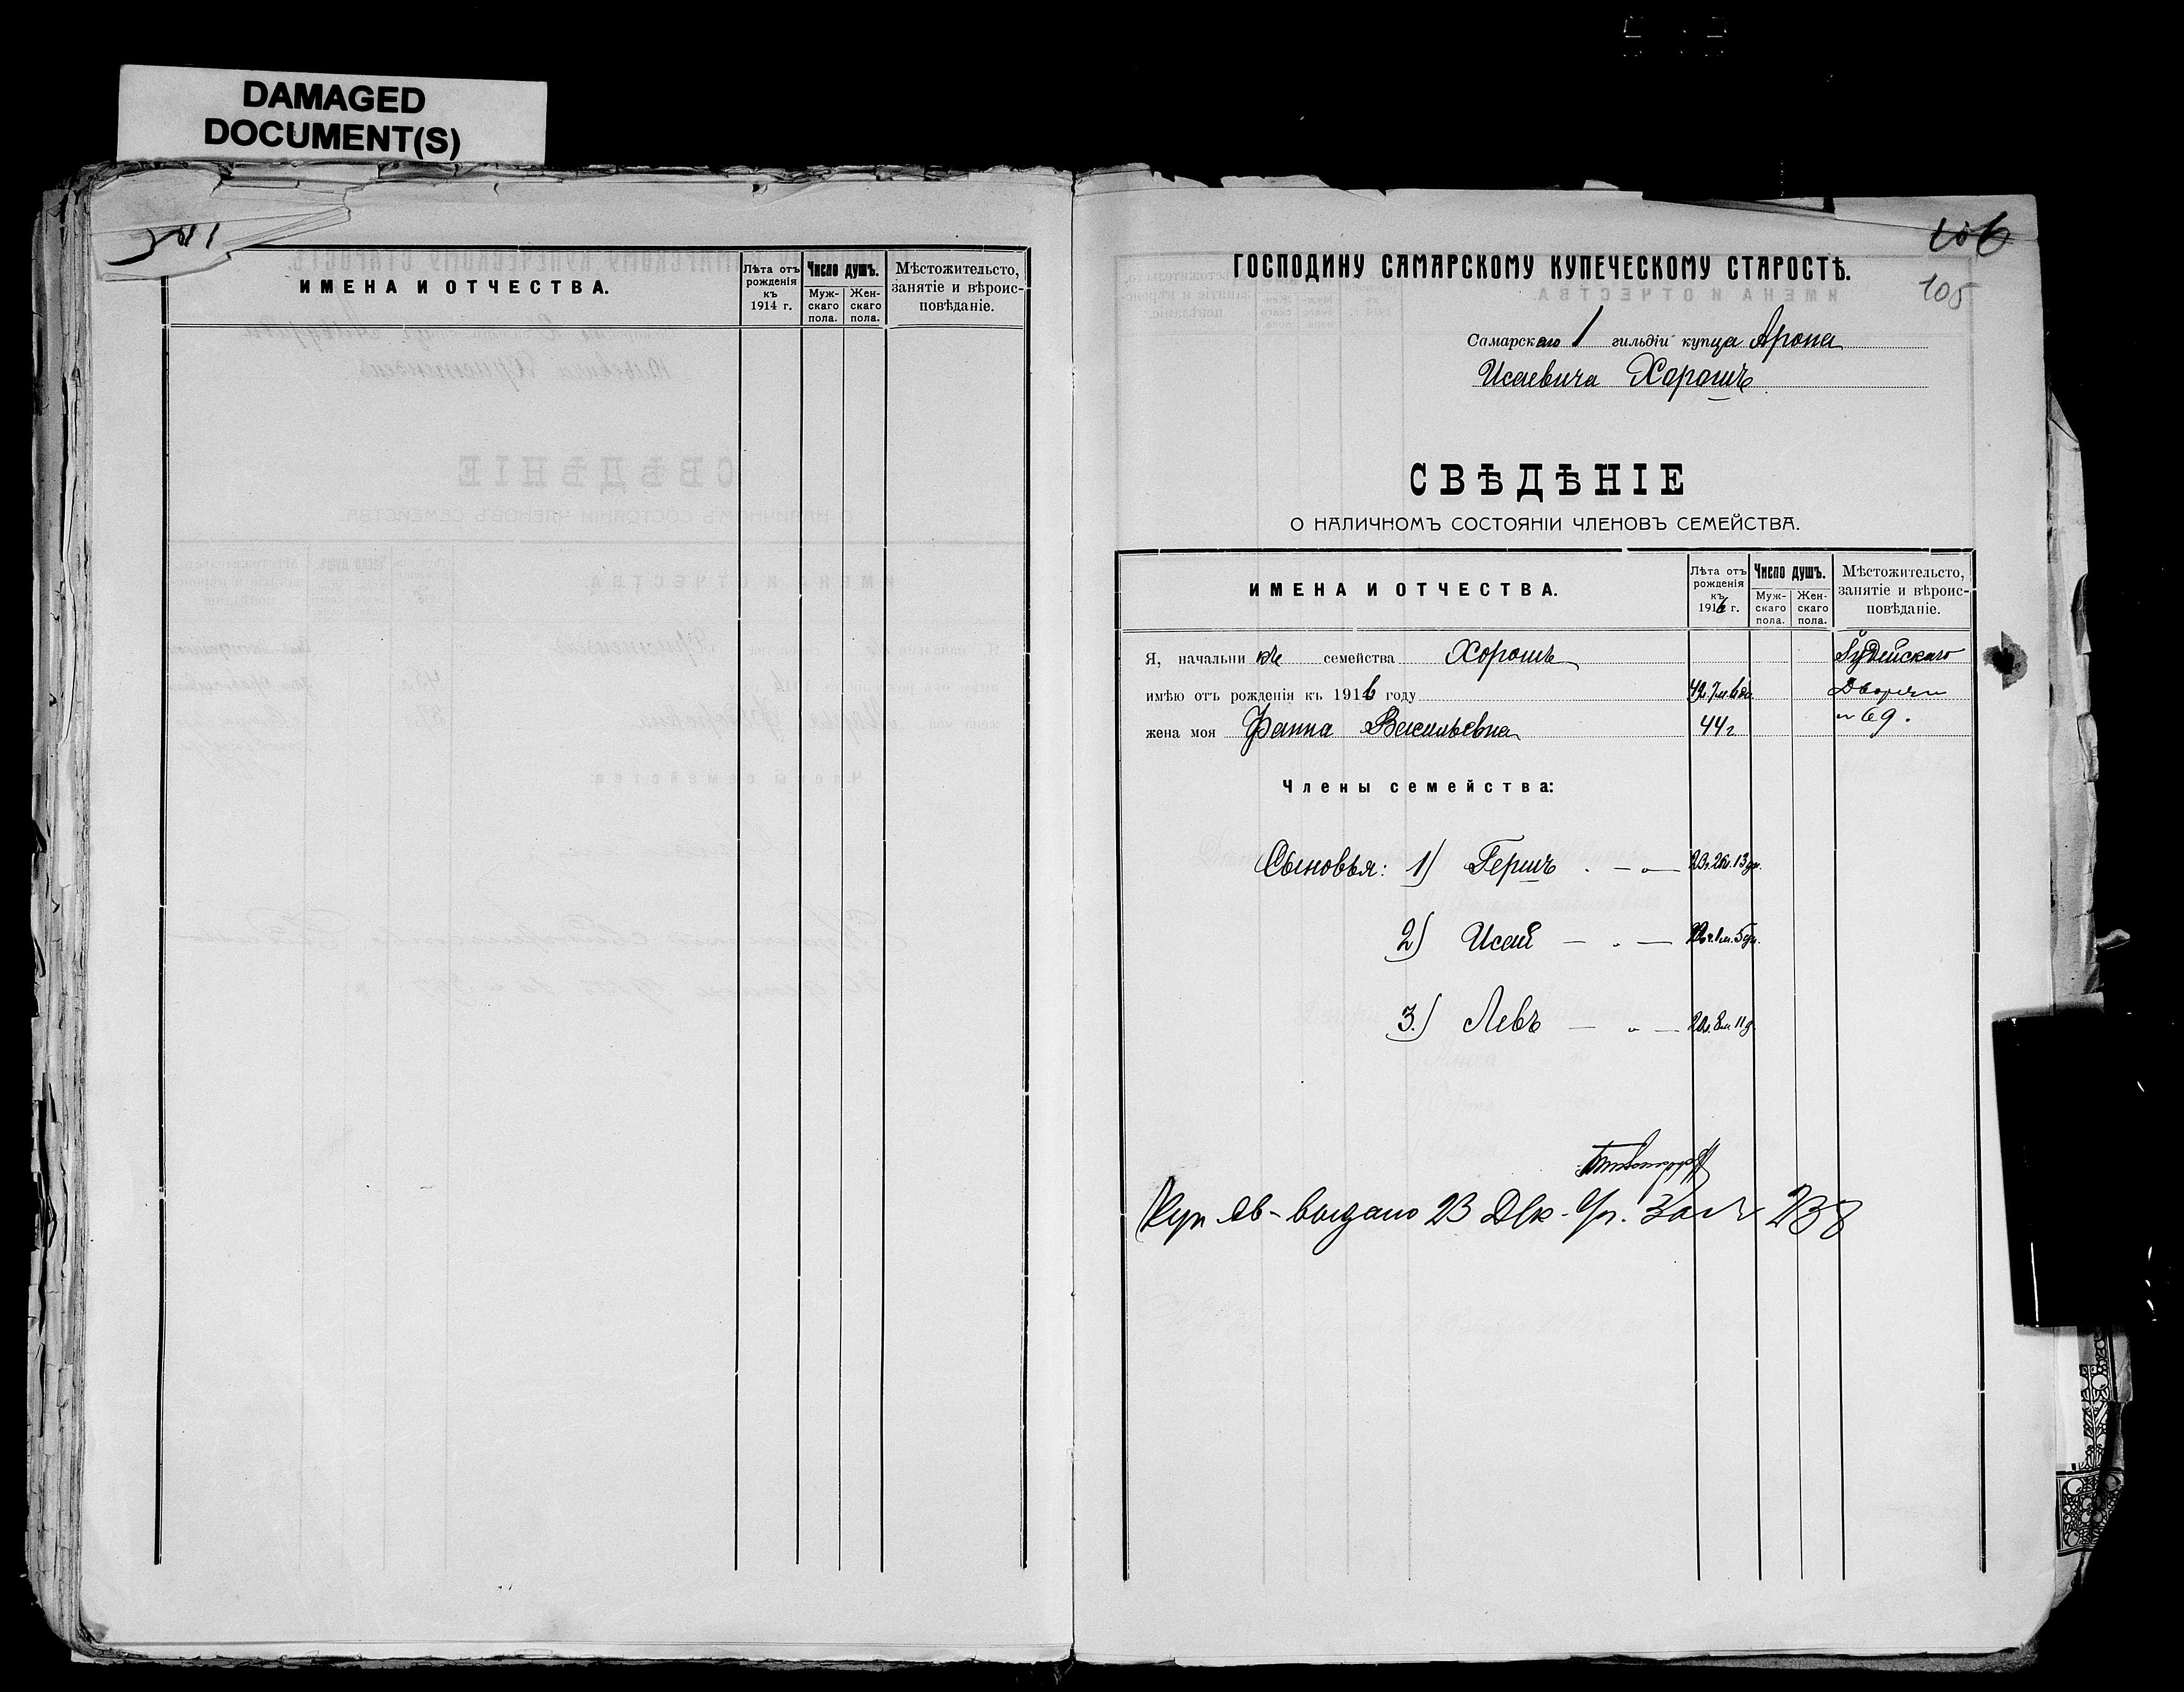 DAMAGED
DOCUMENT(S)
ИМЕНА И ОТЧЕСТВА.
Лѣта отъ рожденія къ 1914 г.
Число душъ.
Муж-скаго пола.
Жен-скаго пола.
Мѣстожительсто, занятіе и вѣроис-повѣданіе.
106
105
ГОСПОДИНУ САМАРСКОМУ КУПЕЧЕСКОМУ СТАРОСТѢ.
Самарскаго 1 гильдіи купца Арона
Исаевича Хорошъ
СВѢДѢНІЕ
О НАЛИЧНОМЪ СОСТОЯНІИ ЧЛЕНОВЪ СЕМЕЙСТВА.
ИМЕНА И ОТЧЕСТВА.
Лѣта отъ рожденія къ 1916 г.
Число душъ.
Муж-скаго пола.
Жен-скаго пола.
Мѣстожительсто, занятіе и вѣроис-повѣданіе.
Я, начальникъ семейства Хорошъ Іудейскаго
имѣю отъ рожденія къ 1916 году Дворян
жена моя Фанна Васильевна 44 г № 69.
Члены семейства:
Сыновья: 1) Гершъ — „ — 23г. 2м. 13 дн.
2) Исай — „ —
3) Левъ — „ — 20л. 8м 11д.
Куп св-выдано 23 Дек. за № 238